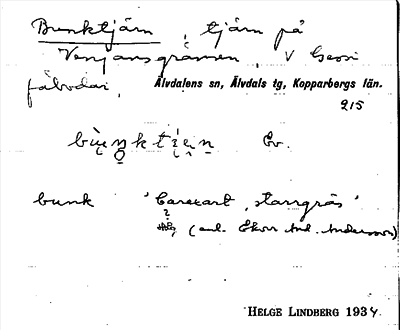 Bunktjärn, tjärn på
Venjansgränsen, V Gessi
fäbodar,
Älvdalens sn, Älvdals tg, Kopparbergs län.
215
Ev.
bunk 'Carexart, starrgräs'
(enl. Ekorr And. Andersson)
HELGE LINDBERG 1934.